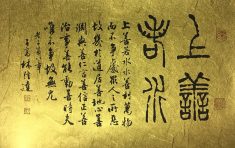 上善
若水
上善若水水善利萬物
而不爭處衆人之所惡
故幾於道居善地心善
淵與善仁言善信正善
治事善能動善時夫
唯不爭故無尤